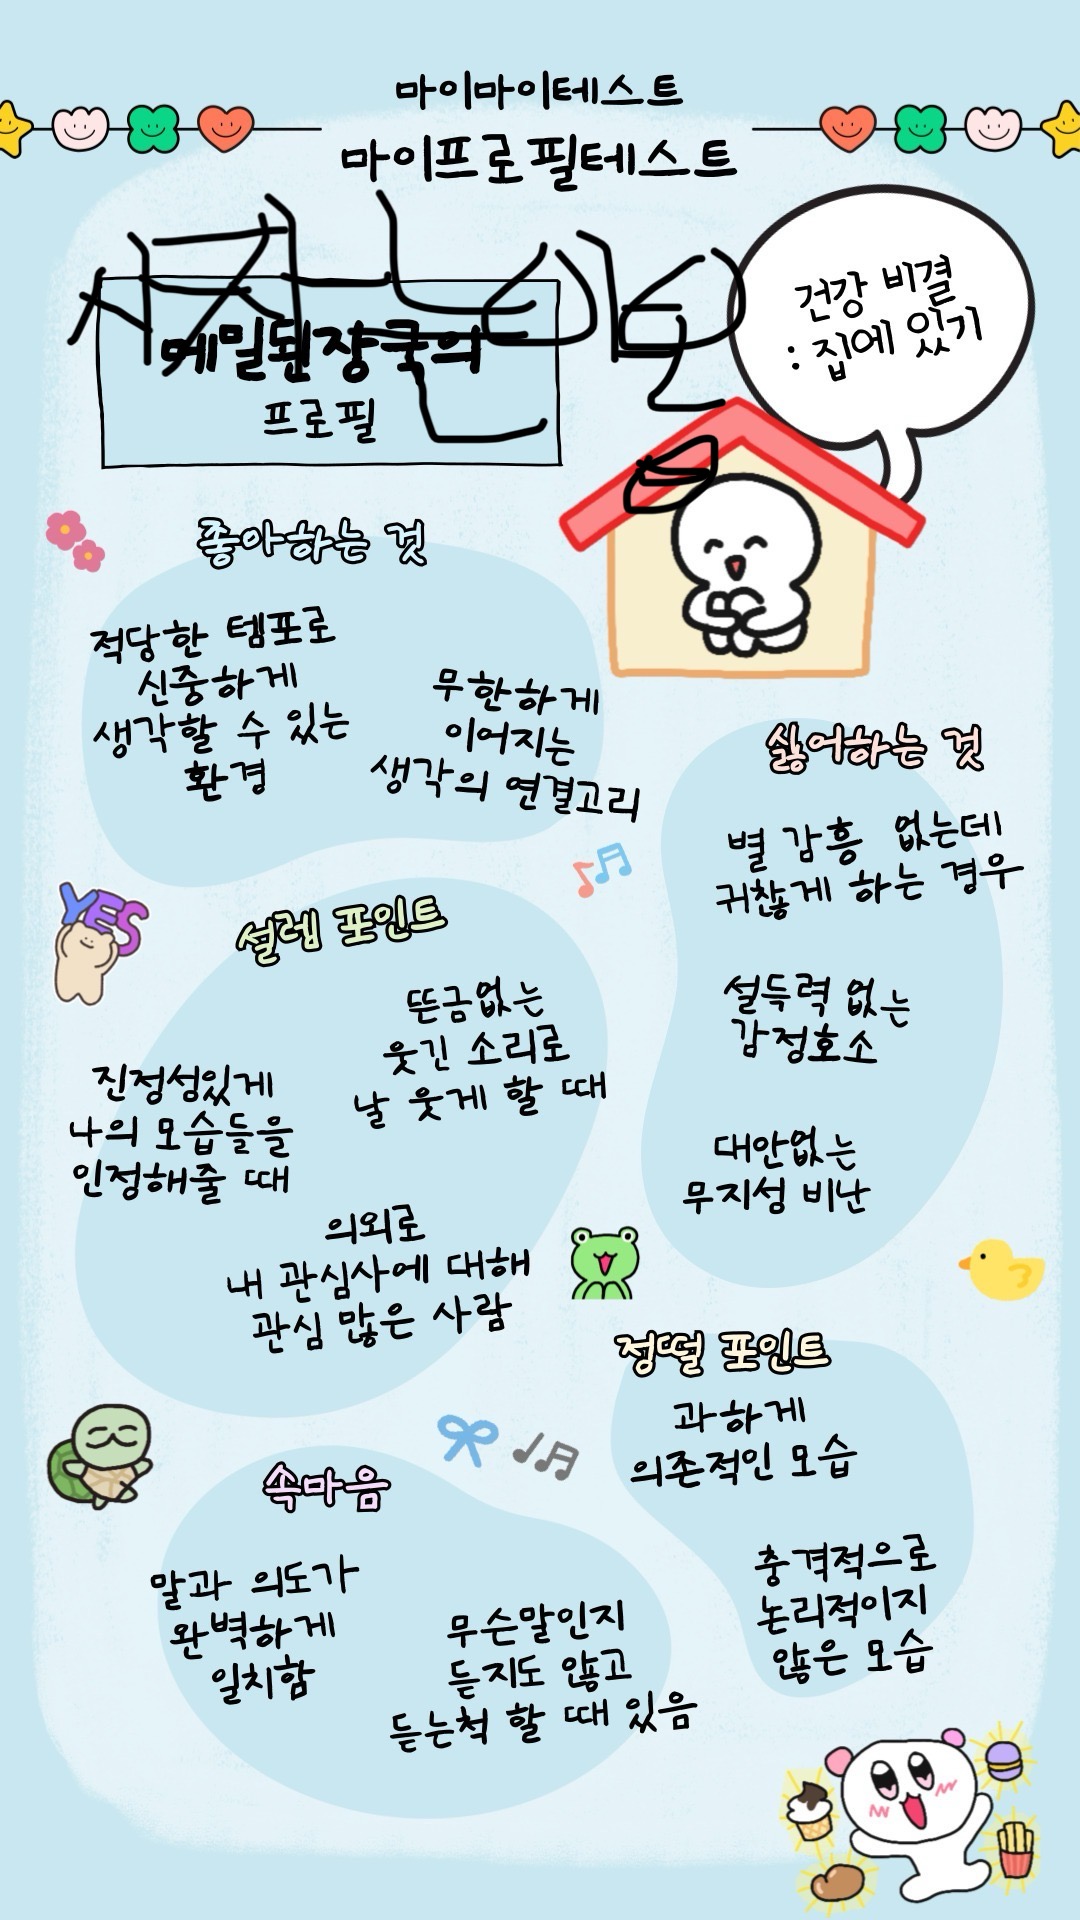 마이마이테스트
마이프로필테스트
메밀된장국의
프로필
건강 비결
: 집에 있기
좋아하는 것
적당한 템포로
신중하게
생각할 수 있는
환경
무한하게
이어지는
생각의 연결고리
싫어하는 것
별 감흥 없는데
귀찮게 하는 경우
설득력 없는
감정호소
대안없는
무지성 비난
YES
설렘 포인트
뜬금없는
웃긴 소리로
날 웃게 할 때
진정성있게
나의 모습들을
인정해줄 때
의외로
내 관심사에 대해
관심 많은 사람
정떨 포인트
과하게
의존적인 모습
충격적으로
논리적이지
않은 모습
속마음
말과 의도가
완벽하게
일치함
무슨말인지
듣지도 않고
듣는척 할 때 있음